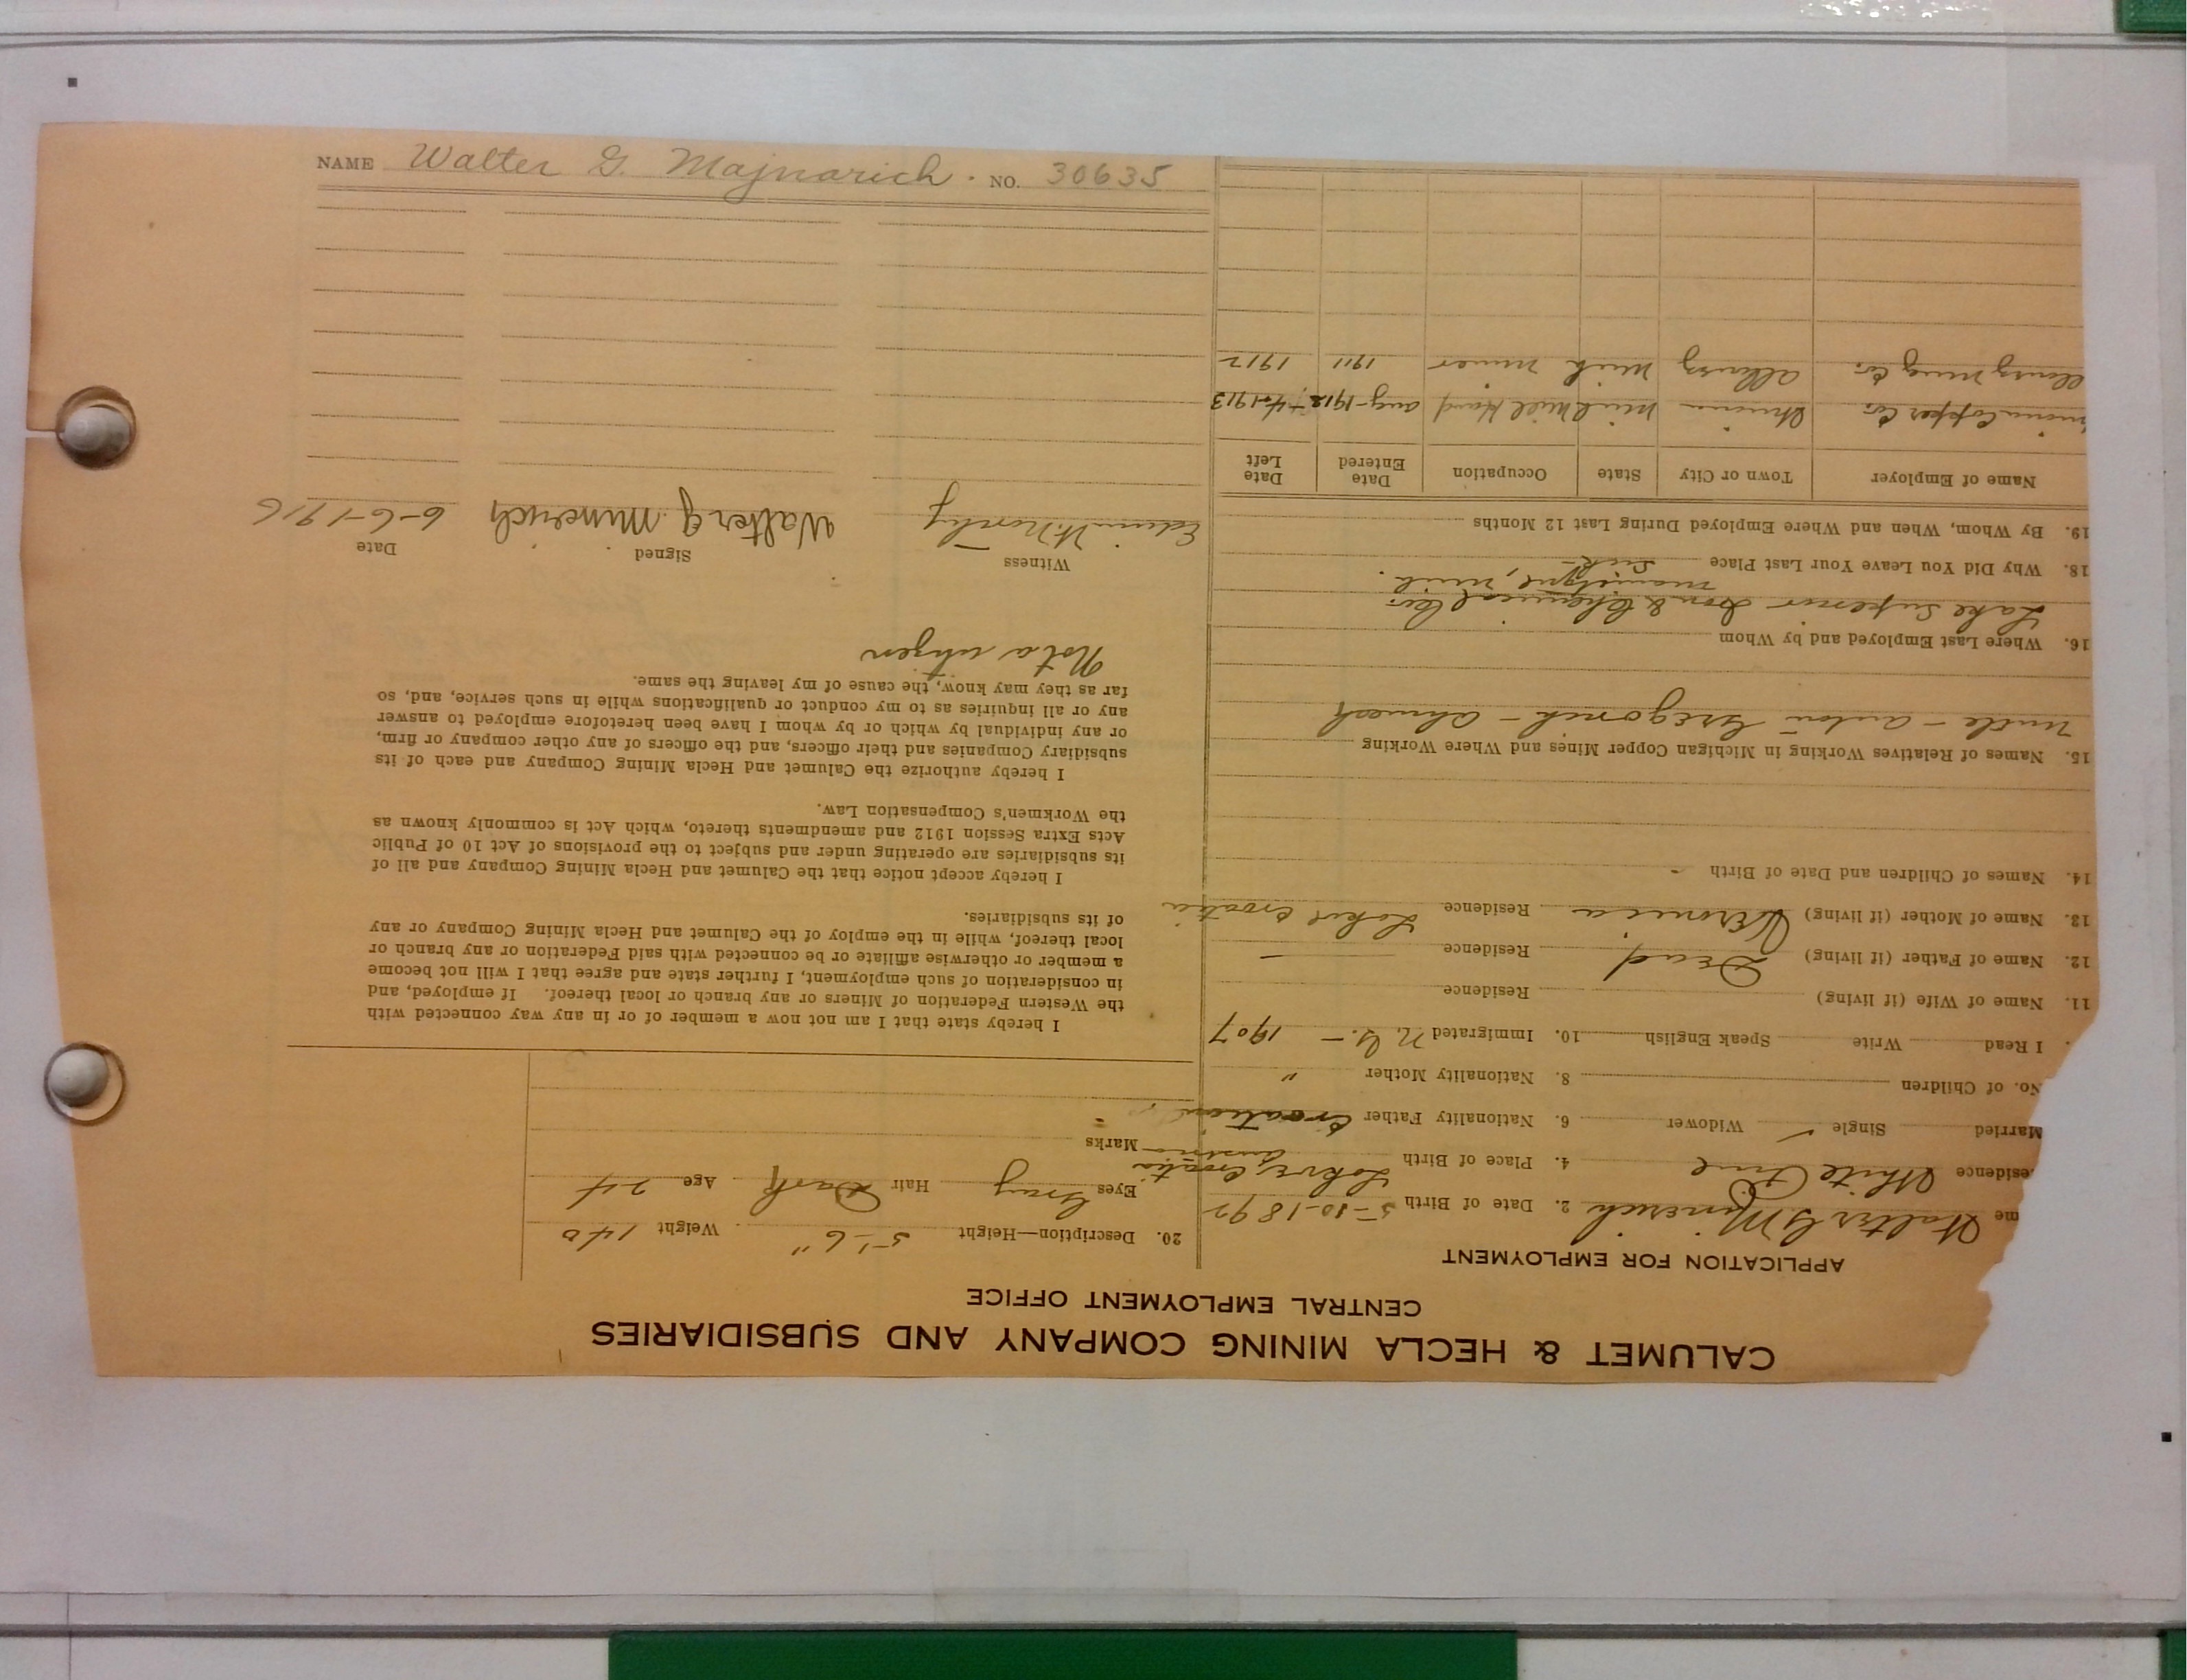 CALUMET & HECLA MINING COMPANY AND SUBSIDIARIES
CENTRAL EMPLOYMENT OFFICE
APPLICATION FOR EMPLOYMENT
me Walter G Minerich 2. Date of Birth 5-10-1892
esidence White Pine 4. Place of Birth Lokve, Croatia
Austria
Married Single ✓ Widower 6. Nationality Father Croatian
No. of Children 8. Nationality Mother "
. I Read Write Speak English 10. Immigrated N.Y. - 1907
11. Name of Wife (if living) Residence
12. Name of Father (if living) Dead Residence —
13. Name of Mother (if living) Veronica Residence Lokve Croatia
14. Names of Children and Date of Birth -
15. Names of Relatives Working in Michigan Copper Mines and Where Working
Uncle - Anton Gregorich - Ahmeek
16. Where Last Employed and by Whom
Lake Superior Iron & Chemical Co.
Manistique, Mich.
18. Why Did You Leave Your Last Place Sick
19. By Whom, When and Where Employed During Last 12 Months
Name of Employer Town or City State Occupation Date Entered Date Left
Copper Co. Mich Mill Hand Aug-1912 1913
Mining Co. Allouez Mich Miner 1911 1912
20. Description—Height 5'-6" Weight 140
Eyes Gray Hair Dark Age 24
Marks -
I hereby state that I am not now a member of or in any way connected with
the Western Federation of Miners or any branch or local thereof. If employed, and
in consideration of such employment, I further state and agree that I will not become
a member or otherwise affiliate or be connected with said Federation or any branch or
local thereof, while in the employ of the Calumet and Hecla Mining Company or any
of its subsidiaries.
I hereby accept notice that the Calumet and Hecla Mining Company and all of
its subsidiaries are operating under and subject to the provisions of Act 10 of Public
Acts Extra Session 1912 and amendments thereto, which Act is commonly known as
the Workmen's Compensation Law.
I hereby authorize the Calumet and Hecla Mining Company and each of its
subsidiary Companies and their officers, and the officers of any other company or firm,
or any individual by which or by whom I have been heretofore employed to answer
any or all inquiries as to my conduct or qualifications while in such service, and, so
far as they may know, the cause of my leaving the same.
Not a citizen
Witness Signed Date
Edwin Walter G. Minerich 6-6-1916
NAME Walter G. Majnarich. NO. 30635